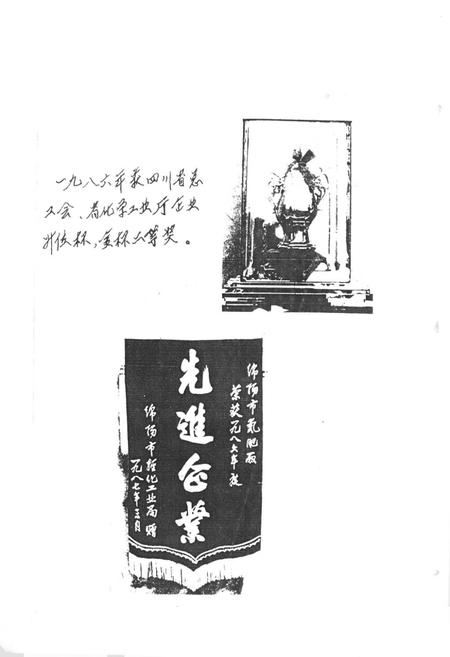 一九八六年获四川省总
工会、省化学工业厅企业
升位杯，金杯二等奖。
绵阳市氮肥厂
荣获一九八六年度
先進企業
绵阳市轻化工业局 赠
一九八七年三月